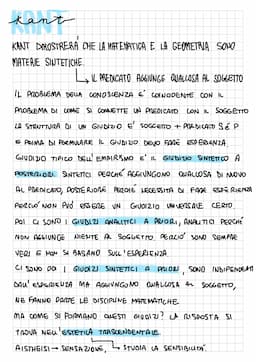 KANT
Kant
KANT DIMOSTRERÀ CHE LA MATEMATICA E LA GEOMETRIA SONO
MATERIE SINTETICHE.
↳ IL PREDICATO AGGIUNGE QUALCOSA AL SOGGETTO
IL PROBLEMA DELLA CONOSCENZA E' COINCIDENTE CON IL
PROBLEMA DI COME SI CONNETTE UN PREDICATO CON IL SOGGETTO
LA STRUTTURA DI UN GIUDIZIO E' SOGGETTO + PREDICATO S É P
E PRIMA DI FORMULARE IL GIUDIZIO DEVO FARE ESPERIENZA.
GIUDIZIO TIPICO DELL'EMPIRISMO E' IL GIUDIZIO SINTETICO A
POSTERIORI. SINTETICI PERCHÉ AGGIUNGONO QUALCOSA DI NUOVO
AL PREDICATO, POSTERIORE PERCHÉ NECESSITA DI FARE ESPERIENZA
PERCIÒ NON PUÒ ESSERE UN GIUDIZIO UNIVERSALE CERTO.
POI CI SONO I GIUDIZI ANALITICI A PRIORI, ANALITICI PERCHÉ
NON AGGIUNGE NIENTE AL SOGGETTO, PERCIÒ SONO SEMPRE
VERI E NON SI BASANO SULL'ESPERIENZA.
CI SONO POI I GIUDIZI SINTETICI A PRIORI, SONO INDIPENDENTI
DALL'ESPERIENZA MA AGGIUNGONO QUALCOSA AL SOGGETTO,
NE FANNO PARTE LE DISCIPLINE MATEMATICHE.
MA COME SI FORMANO QUESTI GIUDIZI? LA RISPOSTA SI
TROVA NELL'ESTETICA TRASCENDENTALE.
AISTHESIS → SENSAZIONE, ↳ STUDIA LA SENSIBILITÀ.